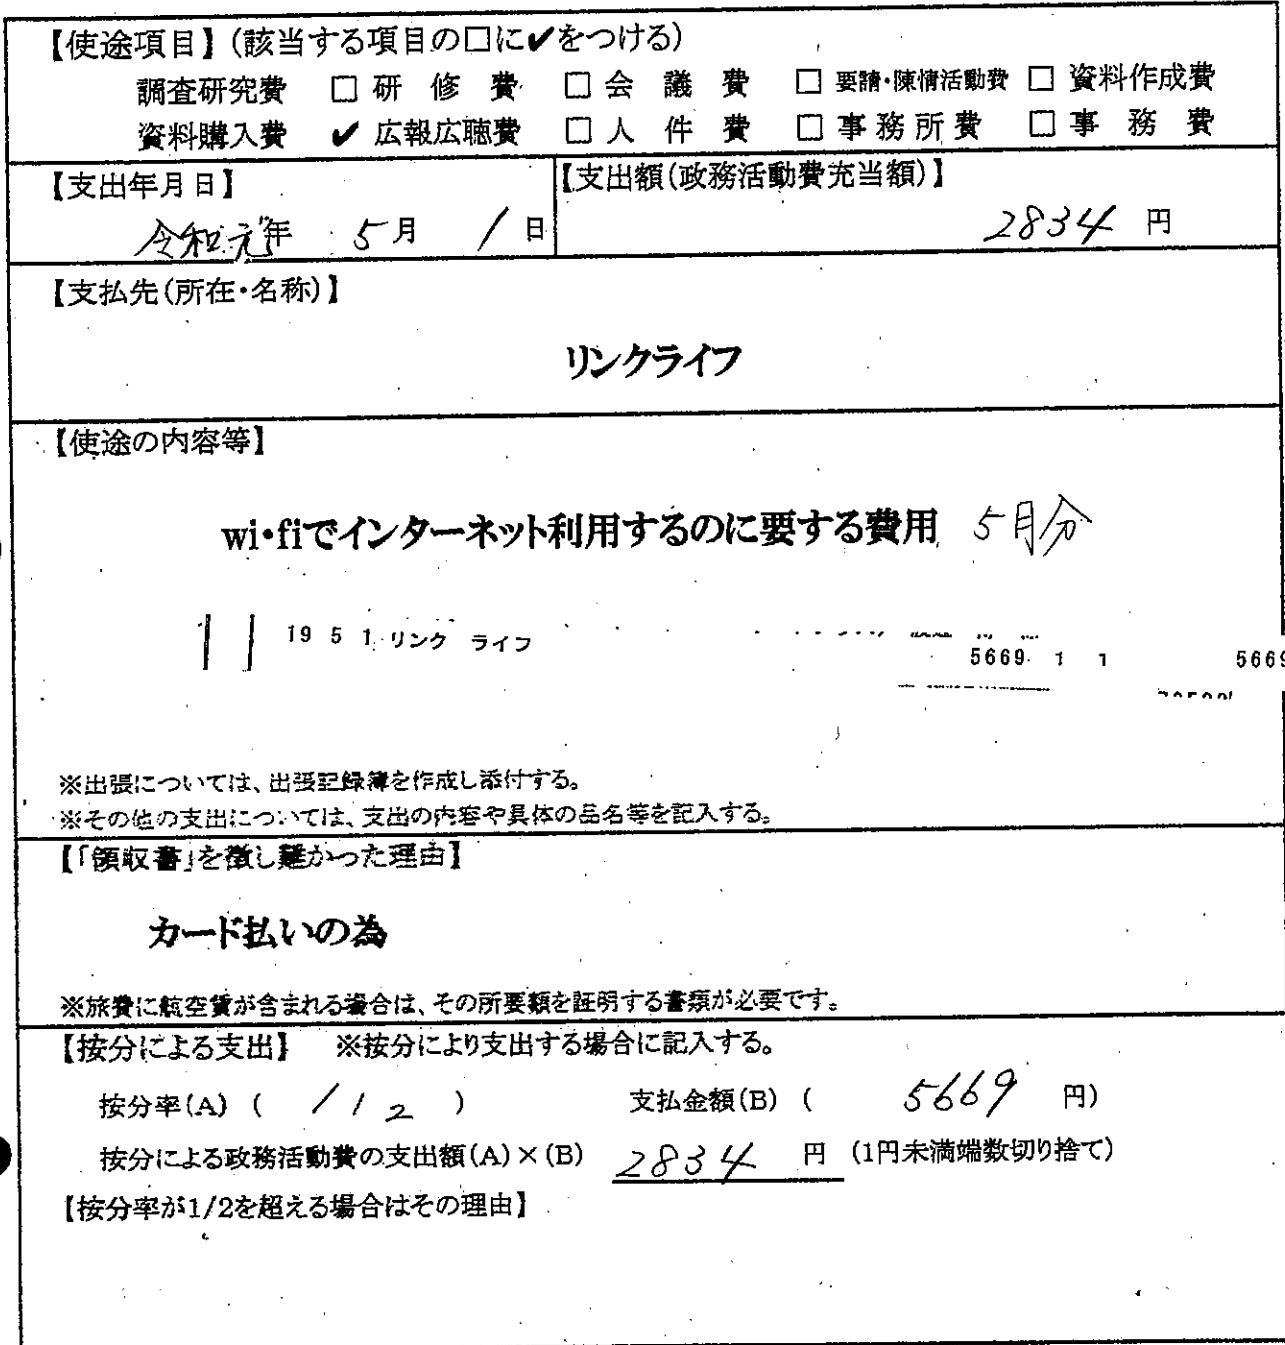 【使途項目】(該当する項目の□に✔をつける)
調査研究費 □ 研 修 費 □ 会 議 費 □ 要請・陳情活動費 □ 資料作成費
資料購入費 ✔ 広報広聴費 □ 人 件 費 □ 事務所費 □ 事 務 費
【支出年月日】 【支出額(政務活動費充当額)】
令和元年 5月 1日 2834 円
【支払先(所在・名称)】
リンクライフ
【使途の内容等】
wi・fiでインターネット利用するのに要する費用 5月分
19 5 1 リンク ライフ
5669 1 1 5669
※出張については、出張記録簿を作成し添付する。
※その他の支出については、支出の内容や具体の品名等を記入する。
【「領収書」を徴し難かった理由】
カード払いの為
※旅費に航空賃が含まれる場合は、その所要額を証明する書類が必要です。
【按分による支出】 ※按分により支出する場合に記入する。
按分率(A) ( 1/2 ) 支払金額(B) ( 5669 円)
按分による政務活動費の支出額(A)×(B) 2834 円 (1円未満端数切り捨て)
【按分率が1/2を超える場合はその理由】